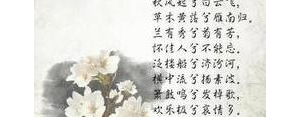 秋风起兮白云飞，
草木黄落兮雁南归。
兰有秀兮菊有芳，
怀佳人兮不能忘。
泛楼船兮济汾河，
横中流兮扬素波。
箫鼓鸣兮发棹歌，
欢乐极兮哀情多。